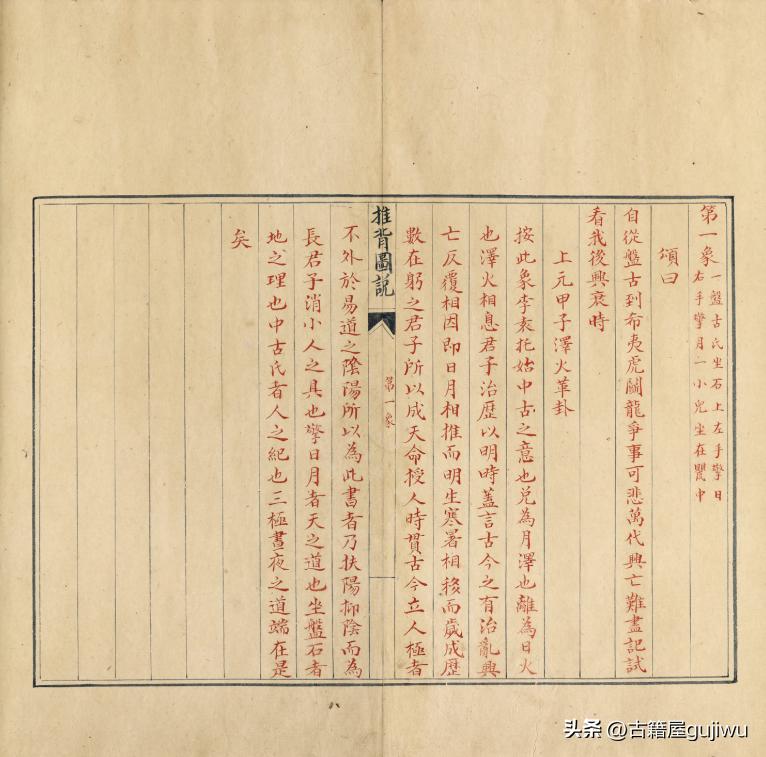 第一象一盤古氏坐石上左手擎日
右手擎月一小兒坐在甖中
頌曰
自從盤古到希夷虎鬭龍爭事可悲萬代興亡難盡記試
看我後興衰時
上元甲子澤火革卦
按此象李袁托始中古之意也兌為月澤也離為日火
也澤火相息君子治歷以明時蓋言古今之有治亂興
亡反覆相因即日月相推而明生寒暑相移而歲成歷
數在躬之君子所以成天命授人時貫古今立人極者
推背圖說
第一象
不外於易道之陰陽所以為此書者乃扶陽抑陰而為
長君子消小人之具也擎日月者天之道也坐盤石者
地之理也中古氏者人之紀也三極晝夜之道端在是
矣
头条 @古籍屋gujiwu